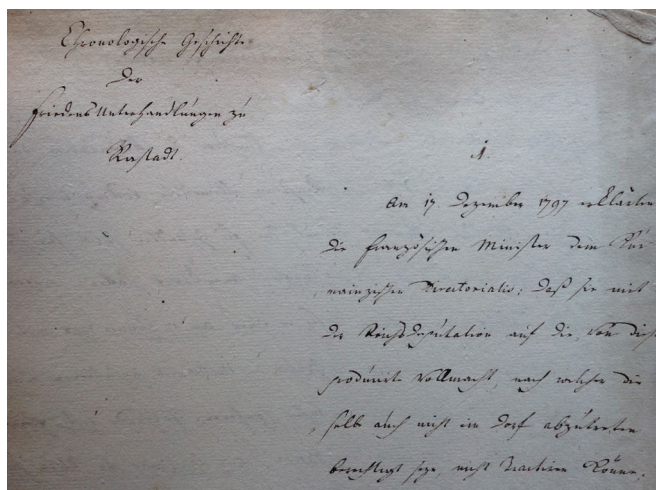 Chronologische Geschichte
der
Friedens Unterhandlungen zu
Rastadt.
1.
Am 17 Dezember 1797 erklärten
die französischen Minister dem Kur-
mainzischen Directorialis: daß sie mit
der Reichsdeputation auf die, von dieser
producirte Vollmacht, nach welcher die-
selbe auch nicht ein Dorf abzutretten
berechtigt seye, nicht tractiren könne,